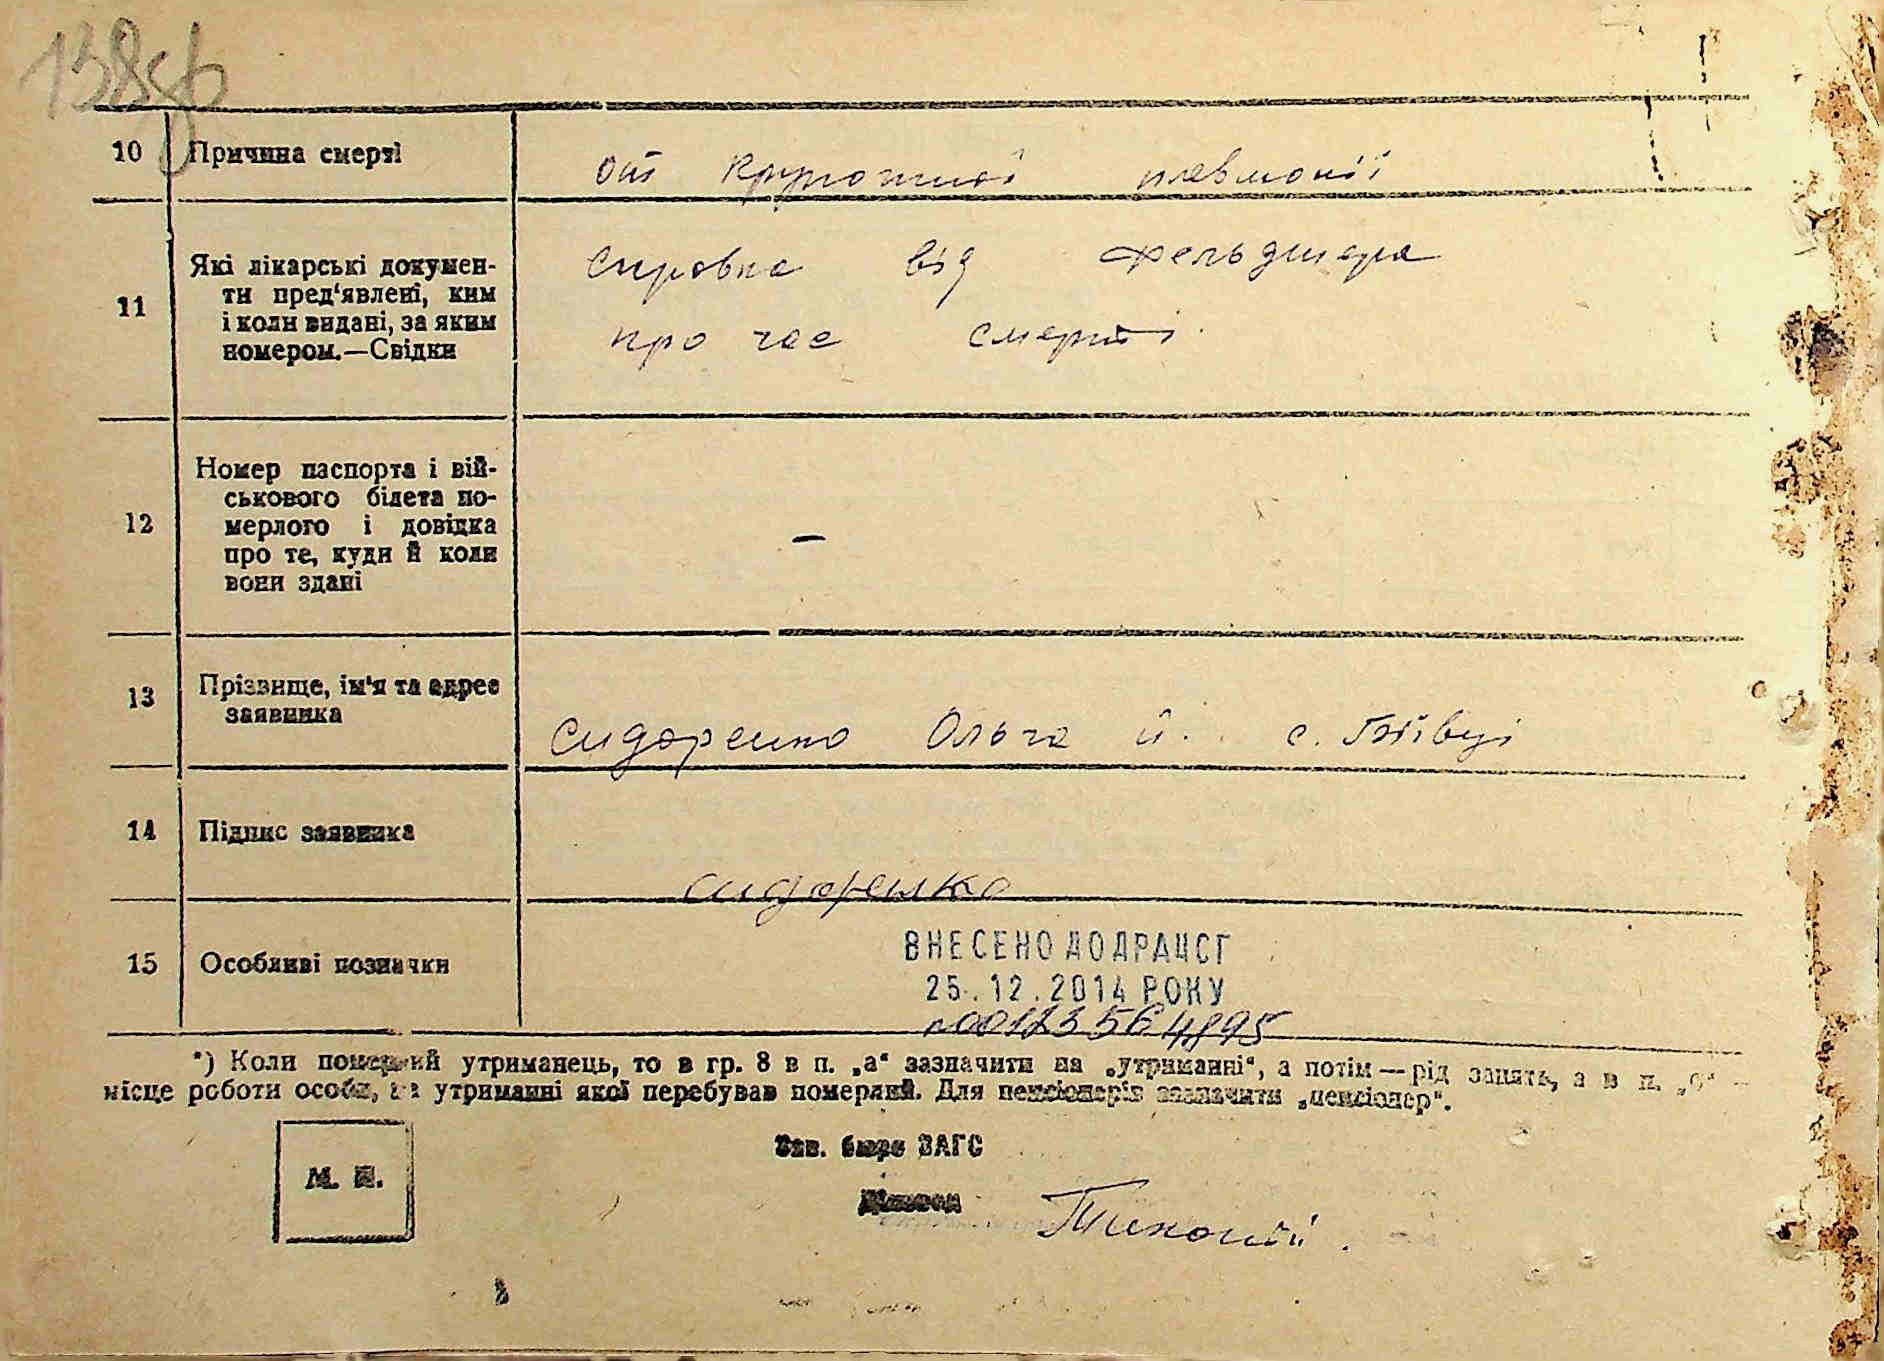 138зв
10 Причина смерті
от крупозної плевмонії
11 Які лікарські докумен-
ти пред'явлені, ким
і коли видані, за яким
номером.—Свідки
справка від фельдшера
про час смерті
12 Номер паспорта і вій-
ськового білета по-
мерлого і довідка
про те, куди й коли
вони здані
—
13 Прізвище, ім'я та адрес
заявника
Сидоренко Ольга Й. с.
14 Підпис заявника
Сидоренко
15 Особливі позначки
ВНЕСЕНО ДО ДРАЦСГ
25.12.2014 РОКУ
№00123564895
*) Коли померлий утриманець, то в гр. 8 в п. „а“ зазначити на „утриманні“, а потім — рід занять, а в п. „б“ —
місце роботи особи, на утриманні якої перебував померлий. Для пенсіонерів зазначити „пенсіонер“.
М. П.
Зав. бюро ЗАГС
Діловод